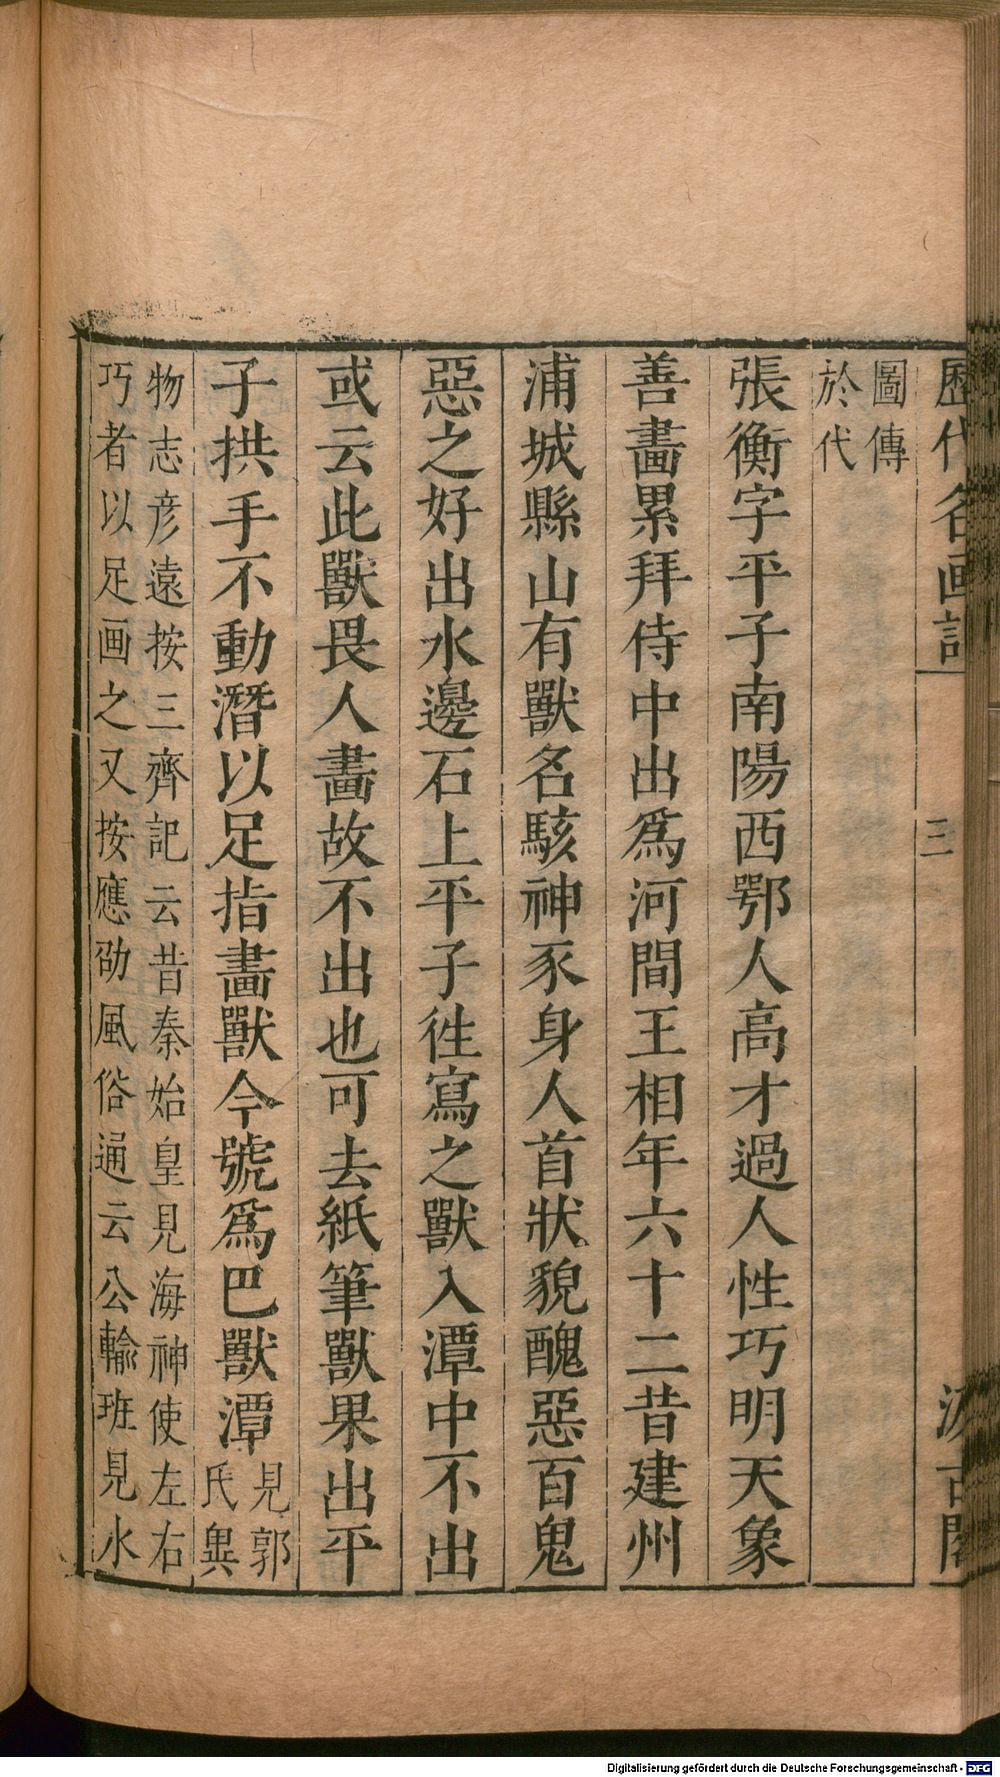 歷代名画記 三 汲古閣
圖傳
於代
張衡字平子南陽西鄂人高才過人性巧明天象
善畫累拜侍中出爲河間王相年六十二昔建州
浦城縣山有獸名駭神豕身人首狀貌醜惡百鬼
惡之好出水邊石上平子徃寫之獸入潭中不出
或云此獸畏人畫故不出也可去紙筆獸果出平
子拱手不動潛以足指畫獸今號爲巴獸潭
見郭
氏異
物志彦遠按三齊記云昔秦始皇見海神使左右
巧者以足画之又按應劭風俗通云公輸班見水
Digitalisierung gefördert durch die Deutsche Forschungsgemeinschaft - DFG